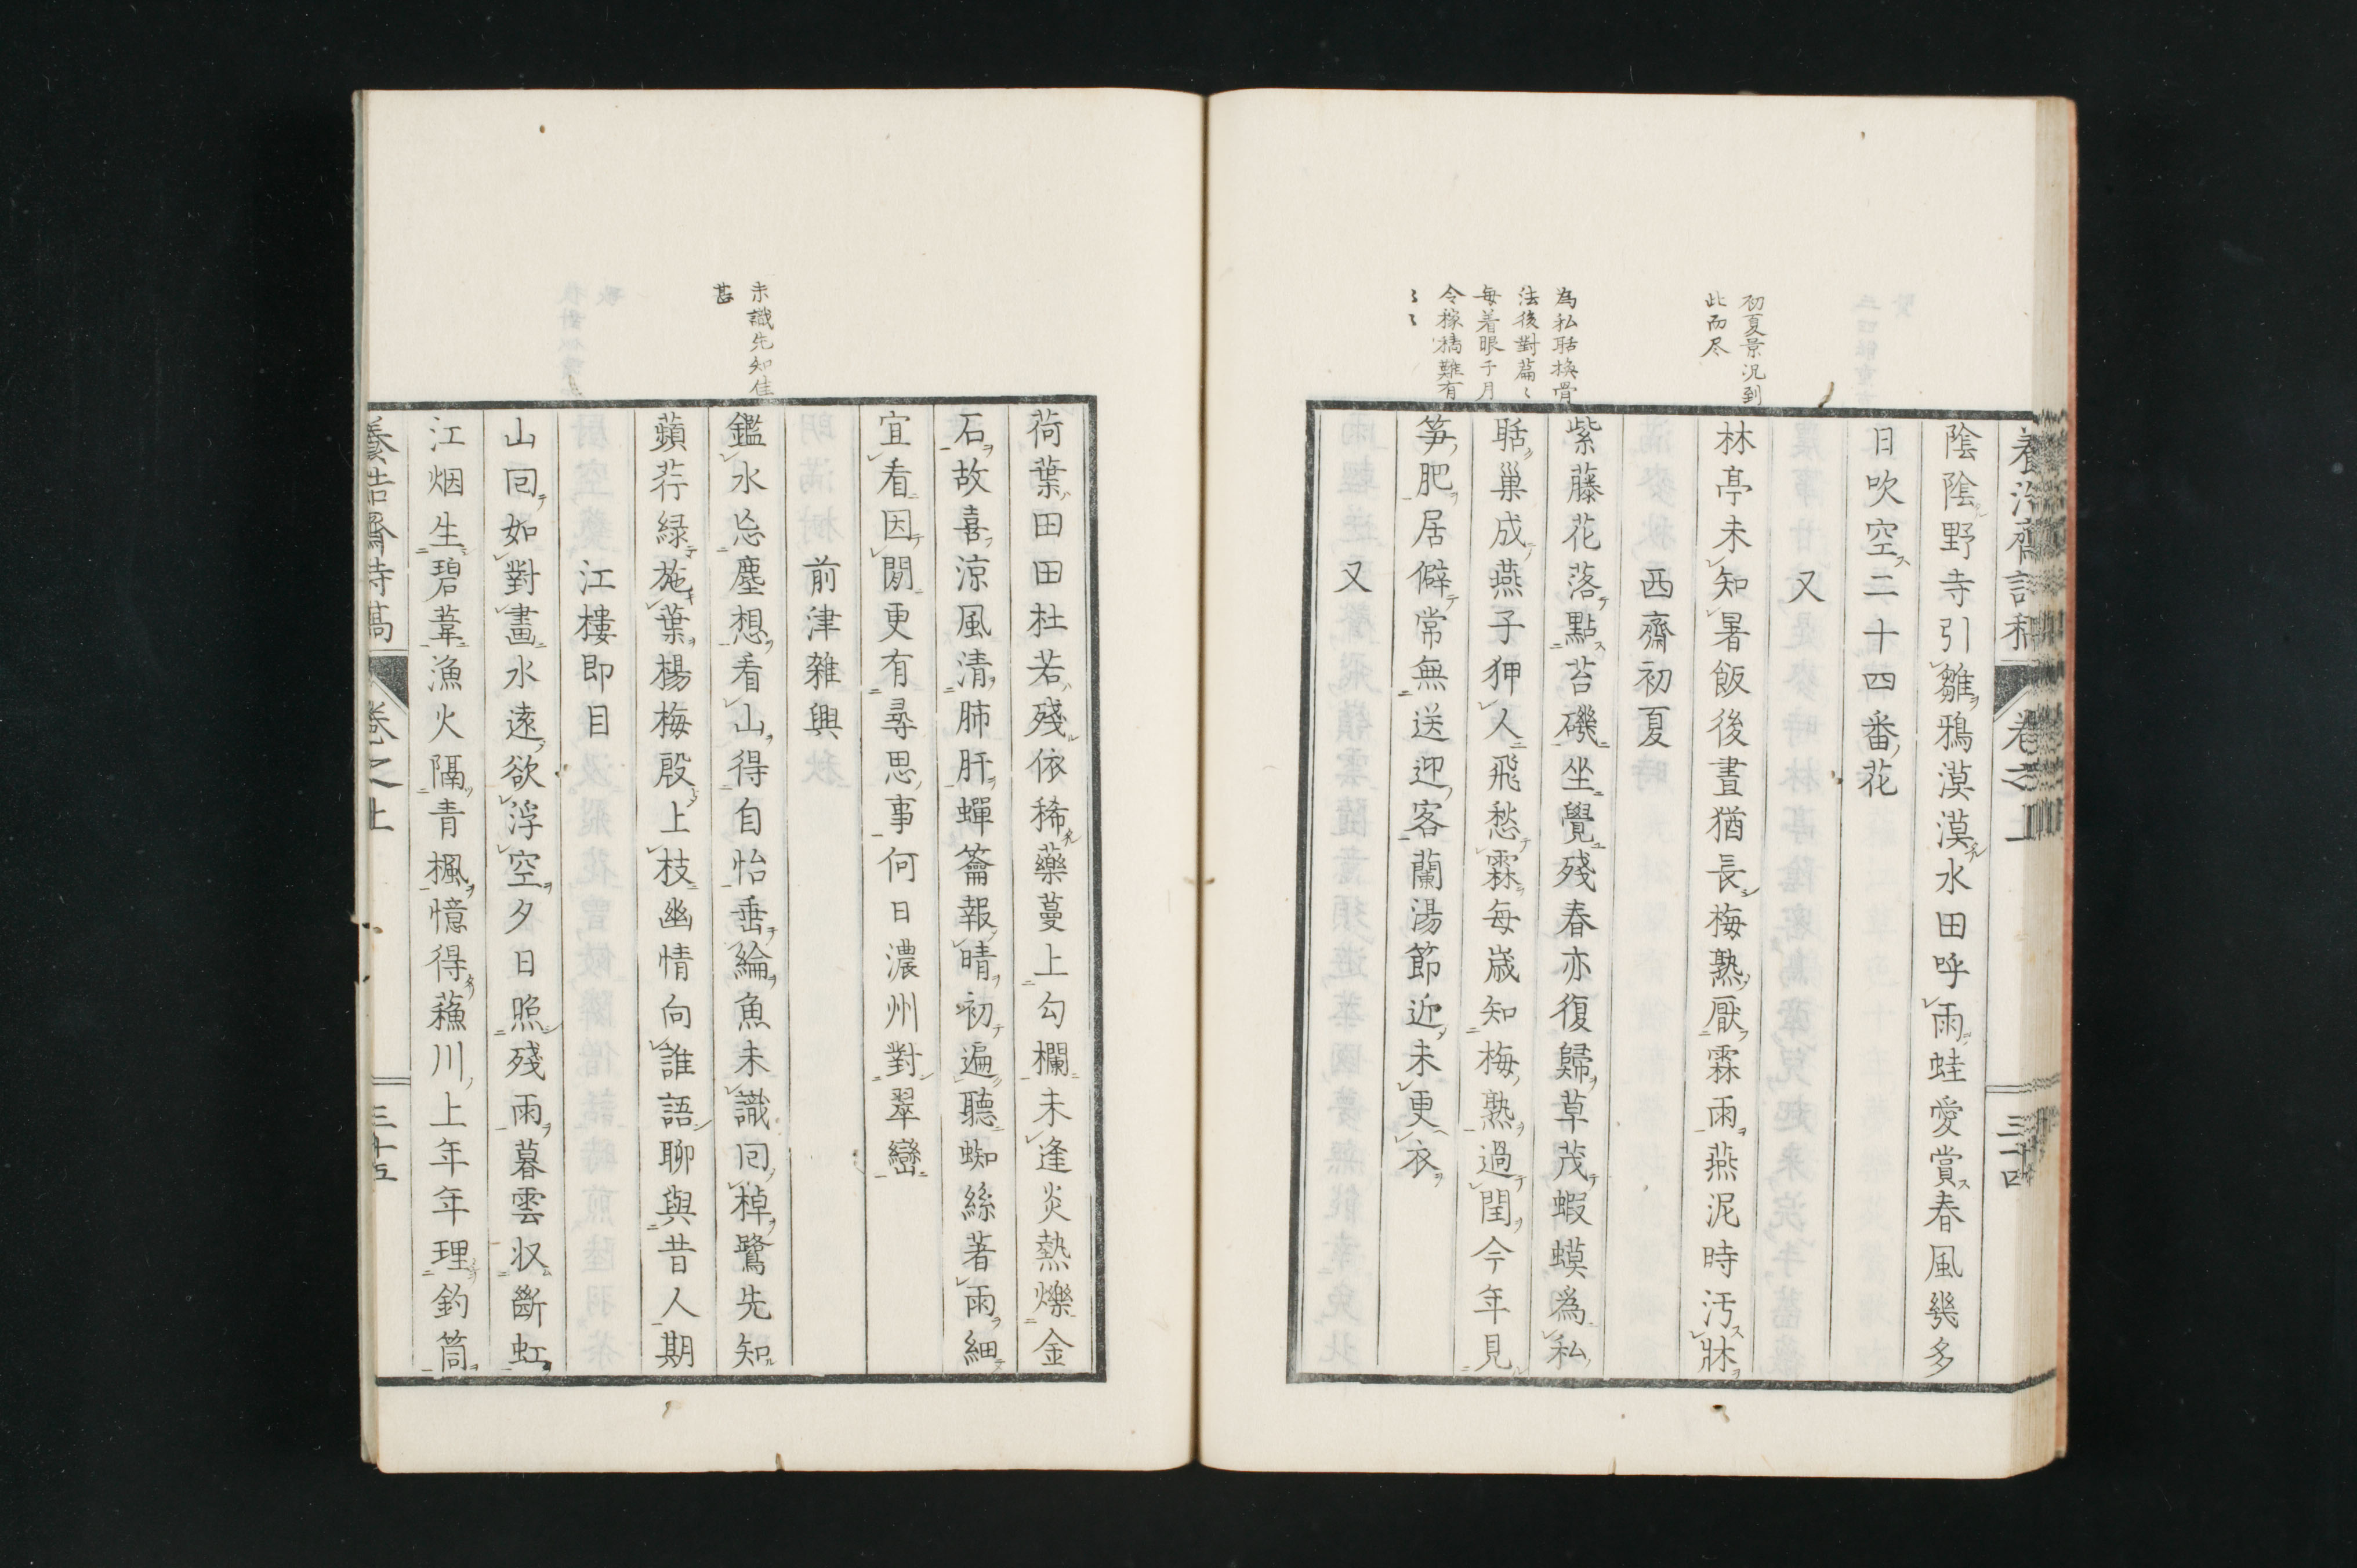 陰陰野寺引雛鴉漠漠水田呼雨蛙愛賞春風幾多
日吹空二十四番花
又
林亭未知暑飯後晝猶長梅熟厭霖雨燕泥時汚牀
西齋初夏
紫藤花落點苔磯坐覺殘春亦復歸草茂蝦蟆爲私
聒巢成燕子狎人飛愁霖每歳知梅熟過閏今年見
笋肥居僻常無送迎客蘭湯節近未更衣
又
初夏景况到
此而尽
為私聒換骨
法後對篇〻
每着眼于月
令檃橋難有
荷葉田田杜若殘依稀藥蔓上勾欄未逢炎熱爍金
石故喜涼風清肺肝蟬籥報晴初遍聽蜘絲著雨細
宜看因閒更有尋思事何日濃州對翠巒
前津雜興
鑑水忘塵想看山得自怡垂綸魚未識回棹鷺先知
蘋荇緑施葉楊梅殷上枝幽情向誰語聊與昔人期
江樓即目
山回如對畫水遠欲浮空夕日照殘雨暮雲収斷虹
江烟生碧葦漁火隔青楓憶得蘓川上年年理釣筒
未識先知佳
甚
養浩齋詩稿 卷之上 三十五